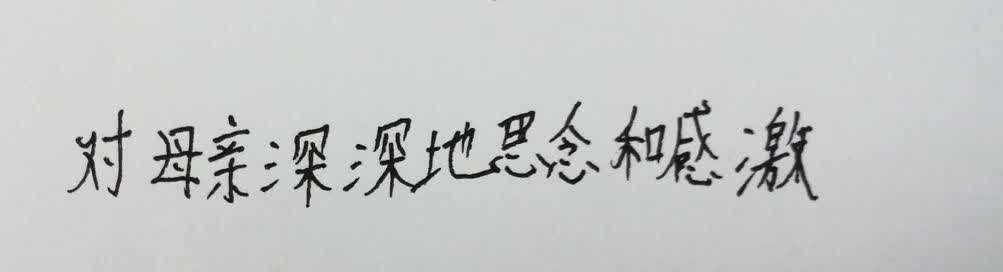 对母亲深深地思念和感激